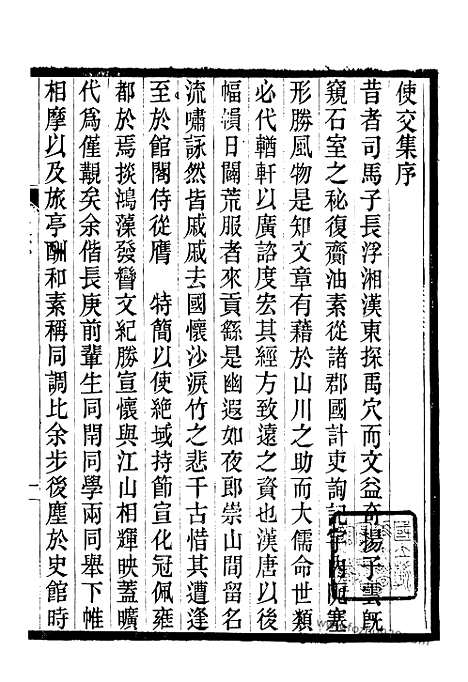 使交集序
昔者司馬子長浮湘漢東探禹穴而文益奇揚子雲既
窺石室之秘復齎油素從諸郡國計吏詢記宇内阨塞
形勝風物是知文章有藉於山川之助而大儒命世類
必代輶軒以廣諮度宏其經方致遠之資也漢唐以後
幅㒞日闢荒服者來貢繇是幽遐如夜郎崇山間留名
流嘯詠然皆戚戚去國懷沙淚竹之悲千古惜其遭逢
至於館閣侍從膺　特簡以使絶域持節宣化冠佩雍
都於焉掞鴻藻發聲文紀勝宣懷與江山相輝映蓋曠
代爲僅觀矣余偕長庚前輩生同閈同學兩同舉下帷
相摩以及旅亭酬和素稱同調比余步後塵於史館時